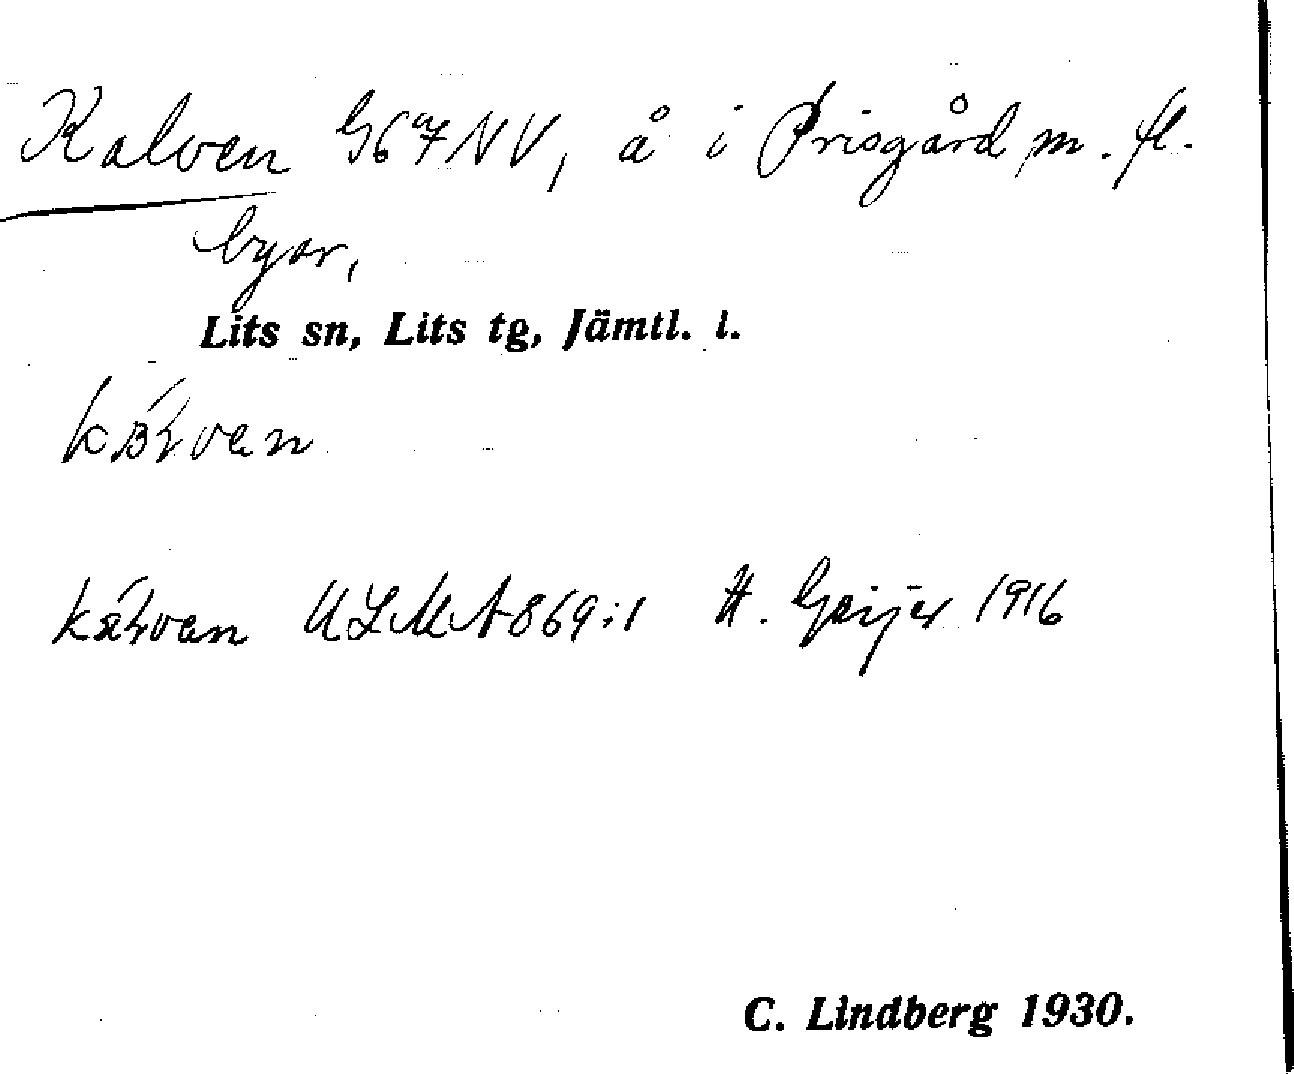 Kalven G67NV, å i Prisgård m. fl.
byar,
Lits sn, Lits tg, Jämtl. l.
ULMA 869:1 H. Geijer 1916
C. Lindberg 1930.